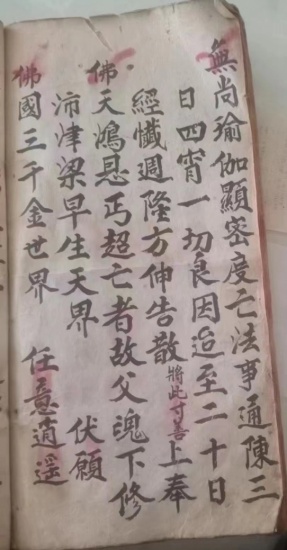 無尚瑜伽顯密度亡法事通陳三
日四宵一切良因迨至二十日
經懺週隆方伸告散將此寸善上奉
佛天鴻恩丐超亡者故父魂下修
沛津梁早生天界 伏願
佛國三千金世界 任意逍遥